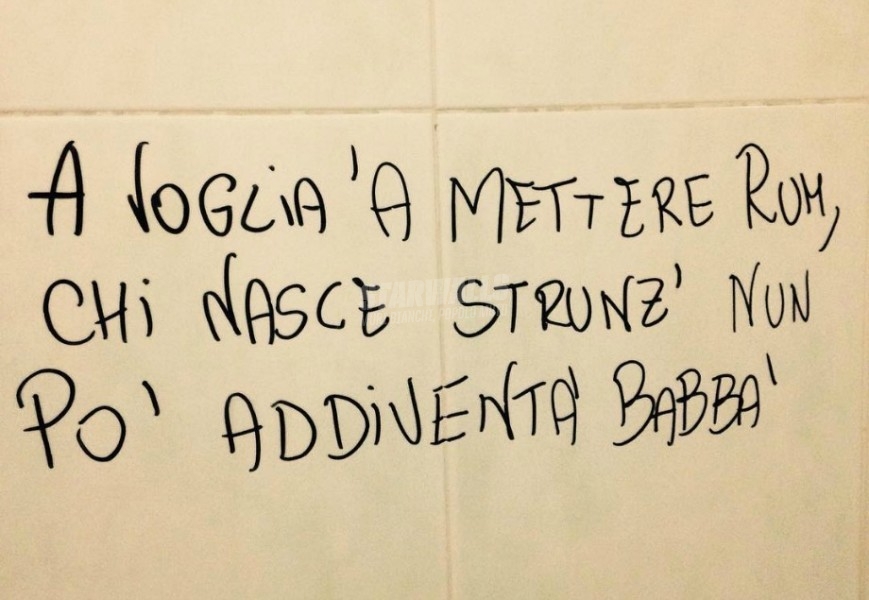 A VOGLIA 'A METTERE RUM,
CHI NASCE STRUNZ' NUN
PO' ADDIVENTA' BABBA'